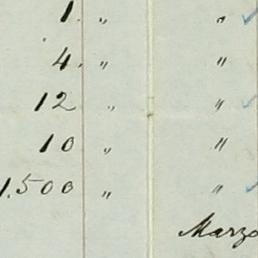 1. " "
4. " "
12 " "
10 " "
1.500 " "
Marzo